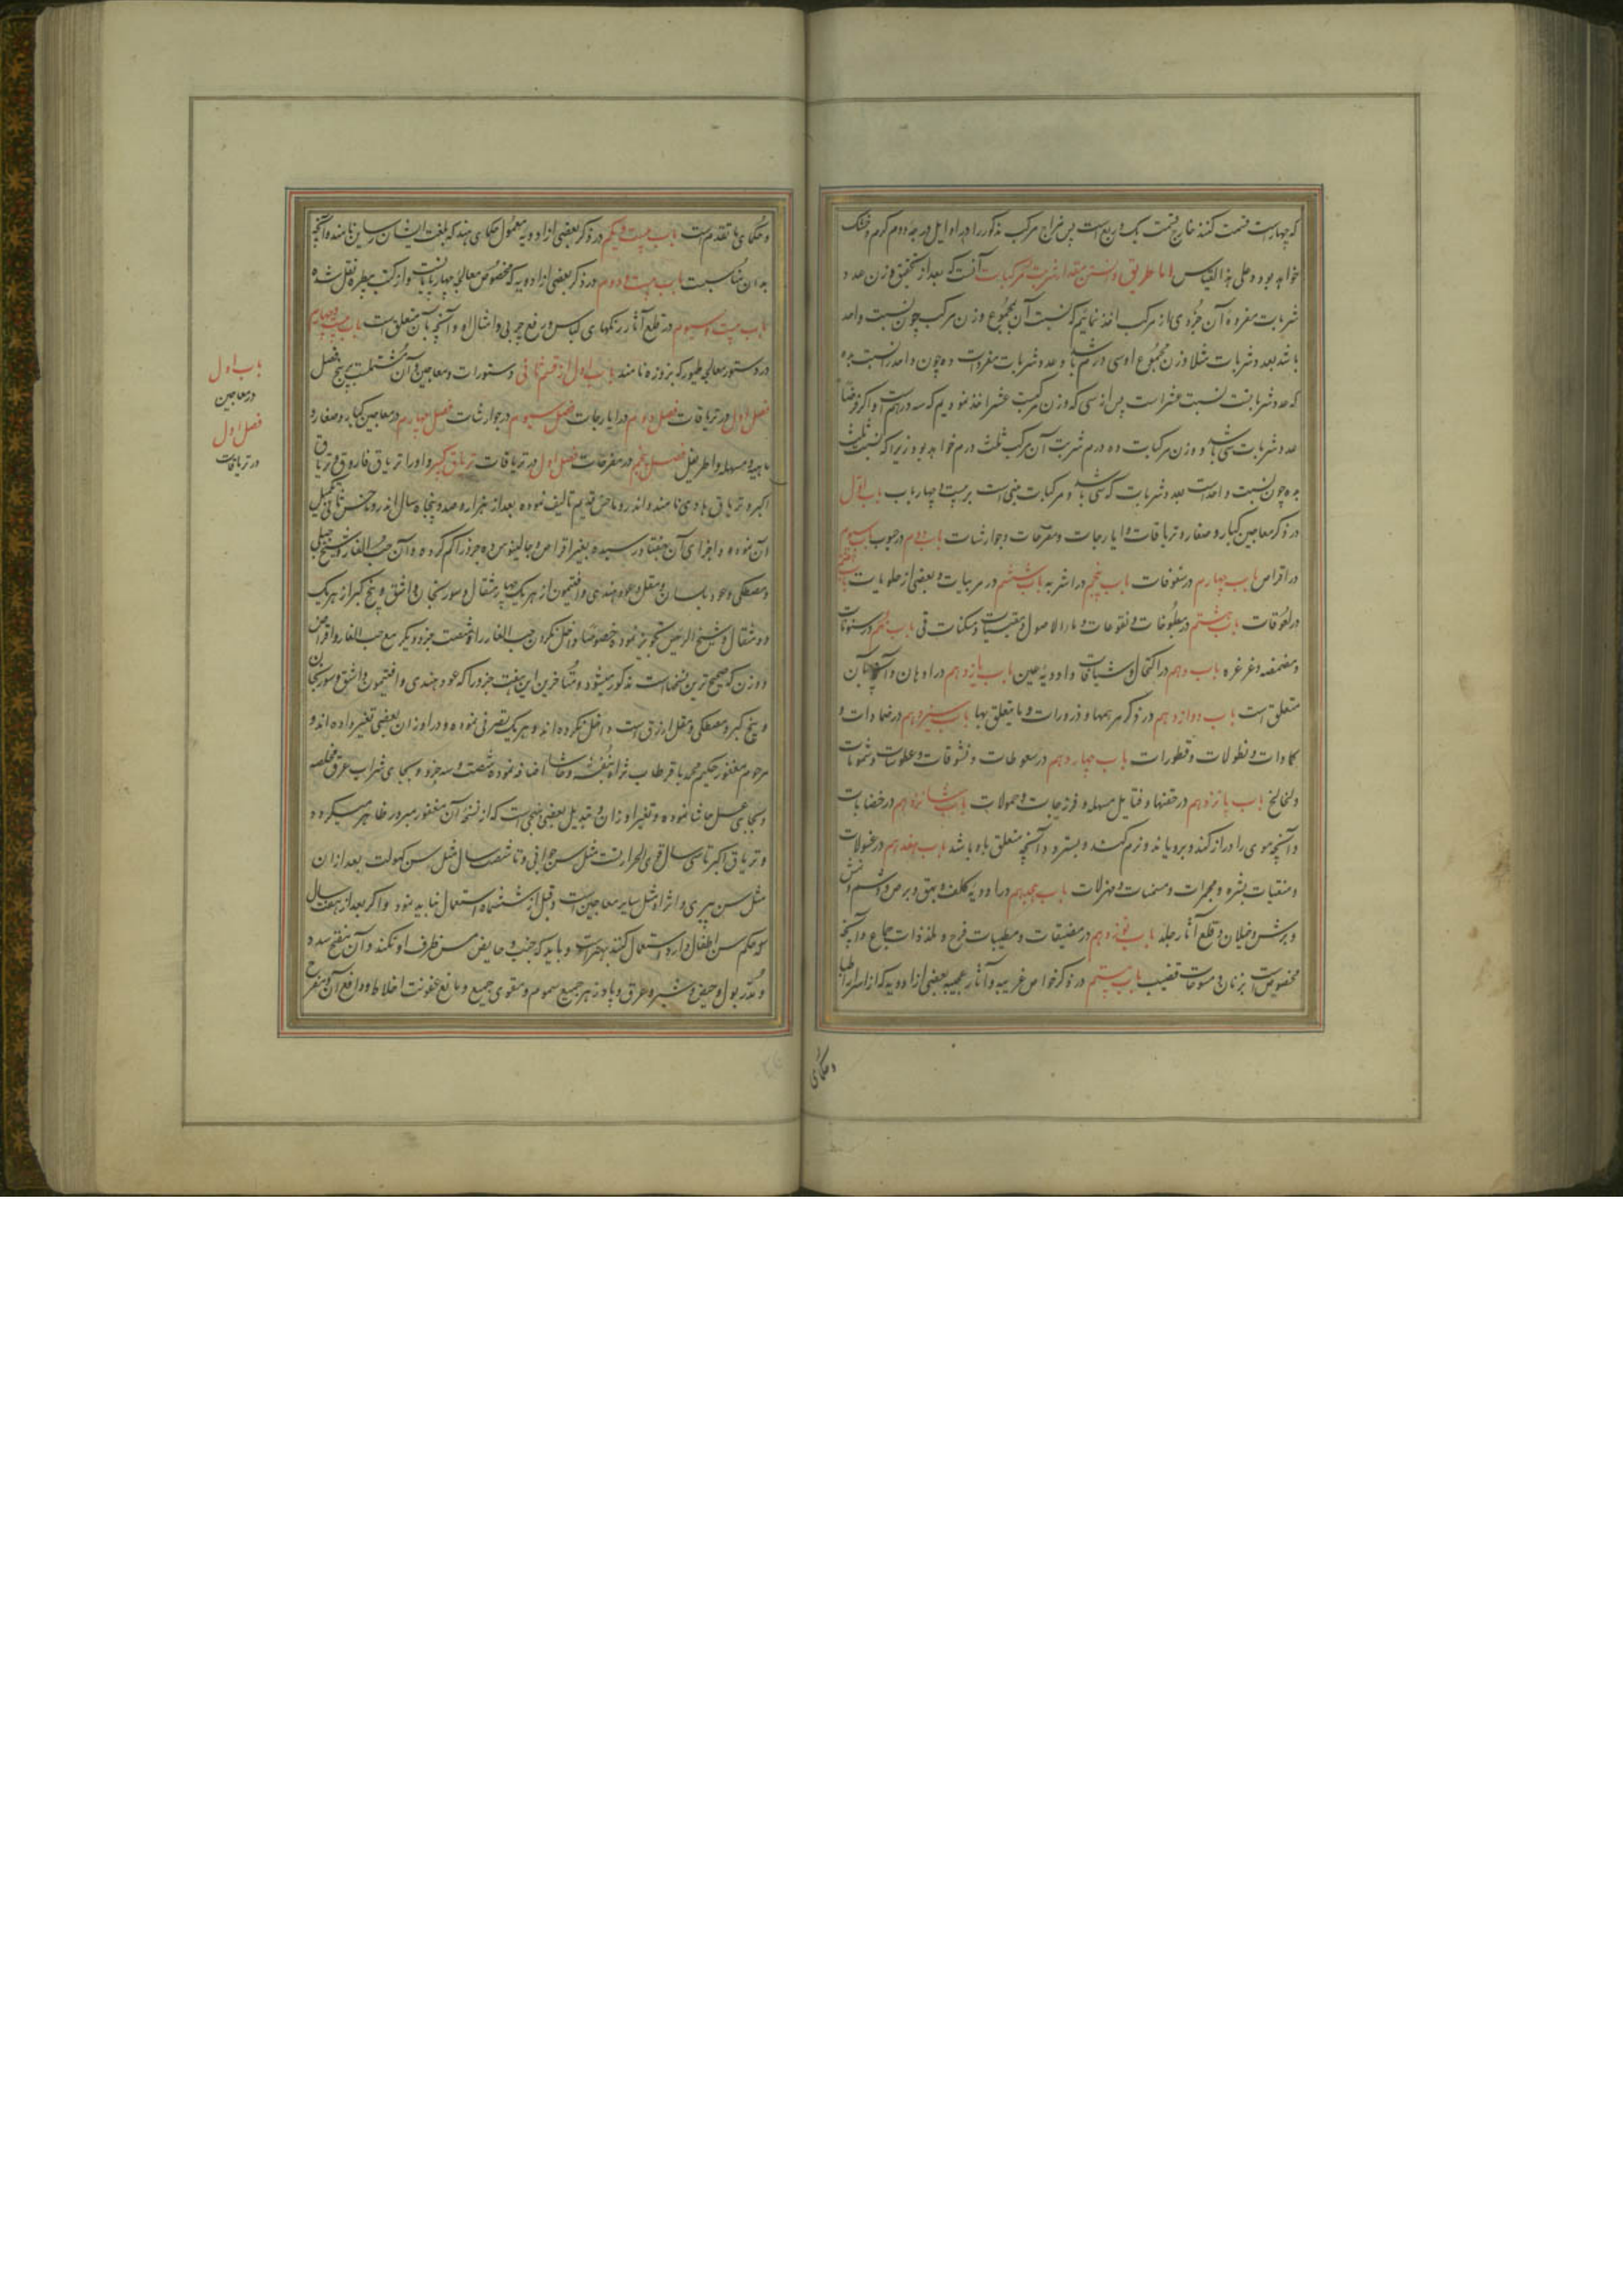 که چهار است قسمت کنند خارج قسمت یک و ربع است پس مزاج مرکب مذکور را در اوایل درجه دوم کرم و خشک
خواهد بود و علی هذا القیاس اما طریق دانستن مقدار شربت مرکبات آنست که بعد از تحقیق وزن عدد
شربات مفرده آن جزوی از مرکب اخذ نمائیم که نسبت آن بمجموع وزن مرکب چون نسبت واحد
باشد بعدد شربات مثلا وزن مجموع او سی درم باشد و عدد شربات مفردات ده چون واحد را نسبت بده
که عدد شربانست نسبت عشر است پس از سی که وزن مرکبست عشر اخذ نمودیم که سه درهم است و اکر فرضا
عدد شربات سی باشد و وزن مرکبات ده درم شربت آن مرکب ثلث درم خواهد بود زیرا که نسبت ثلث
بده چون نسبت واحد است بعدد شربات که سی باشد و مرکبات مبنی است بر بیست و چهار باب باب اول
در ذکر معاجین کبار و صغار و تریاقات و ایارجات و مفرحات و جوارشات باب دوم در حبوب باب سیوم
در اقراص باب چهارم در سفوفات باب پنجم در اشربه باب ششم در مربیات و بعضی از حلویات باب هفتم
در لعوقات باب هشتم در مطبوخات و نقوعات و ماء الاصول و مقییات و مسکنات قی باب نهم در سنونات
و مضمضه و غرغره باب دهم در اکتحال و شیافات و ادویه عین باب یازدهم در ادهان و آنچه بآن
متعلق است باب دوازدهم در ذکر مرهمها و ذرورات و ما یتعلق بها باب سیزدهم در ضمادات و
کمادات و نطولات و قطورات باب چهاردهم در سعوطات و نشوقات و عطوسات و شمومات
و لخالخ باب پانزدهم در حقنها و فتایل مسهله و فرزجات و حمولات باب شانزدهم در خضابات
و آنچه موی را دراز کند و برویاند و نرم کند و بسترد و آنچه متعلق باه باشد باب هفدهم در غسولات
و منقیات بشره و محمرات و مسمنات و مهزلات باب هجدهم در ادویه کلف و بهق و برص و وشم و نمش
و برش و خیلان و قلع آثار جلد باب نوزدهم در مضیقات و مطیبات فرج و ملذذات جماع و آنچه
مخصوص است بزنان و مسوحات قضیب باب بیستم در ذکر خواص غریبه و آثار عجیبه بعضی از ادویه که از اسرار اطبا
و حکمای
و حکمای ما تقدم است باب بیست و یکم در ذکر بعضی از ادویه معمول حکمای هند که بلغت ایشان رساین نامند و آنچه
بدان مناسبت باب بیست و دوم در ذکر بعضی از ادویه که مخصوص معالجه چهارپایانست و از کتب بیطره نقل شده
باب بیست و سیوم در قلع آثار رنکهای لباس و رفع چربی و امثال او و آنچه بآن متعلق است باب بیست و چهارم
در دستور معالجه طیور که بزوزه نامند باب اول از قسم ثانی دستورات و معاجین و آن مشتملست بر پنج فصل
فصل اول در تریاقات فصل دوم در ایارجات فصل سیوم در جوارشات فصل چهارم در معاجین کبار و صغار و
ماهیه و مسهله و اطریفل فصل پنجم در مفرحات فصل اول در تریاقات تریاق کبیر و او را تریاق فاروق و تریاق
اکبر و تریاق هادی نامند و اندروماخس قدیم تالیف نموده بعد از هزار و صد و پنجاه سال اندروماخس ثانی تکمیل
آن نموده و اجزای آن بهفتاد رسیده بغیر اقراص و جالینوس ده جزو را کم کرده و آن حب الغار و شیح جبلی
و مصطکی و عود بلسان و مقل و عود هندی و افتیمون از هر یک چهار مثقال و سورنجان و اشق و بیخ کبر از هر یک
دو مثقال و شیخ الرئیس تجویز نموده خصوصا داخل نکردن حب الغار را و شصت جزو دیکر مع حب الغار و اقراص
دو وزن که صحیح ترین نسخهاست مذکور میشود و متاخرین این هفت جزو را که عود هندی و افتیمون و اشق و سورنجان
و بیخ کبر و مصطکی و مقل ازرق است داخل نکرده اند و هر یک تصرفی نموده و در اوزان بعضی تغیر داده اند و
مرحوم مغفور حکیم محمد باقر طاب ثراه بنفشه و حاشا اضافه نموده شصت و سه جزو و بجای شراب عرق مخلصه
و بجای عسل حاشا نموده و تغیر اوزان و تبدیل بعضی نهجی است که از نسخه آن مغفور مبرور ظاهر میکردد
و تریاق اکبر تا سی سال قوی الحرارتست مثل سن جوانی و تا شصت سال مثل سن کهولت بعد از ان
مثل سن پیری و اثر او مثل سایر معاجین است و قبل از ششماه استعمال نباید نمود و اکر بعد از هفت سال
که حکم سن اطفال دارد استعمال کنند بهتر است و باید که جنب و حایض مس ظرف او نکند و آن مفتح سدد
و مدر بول و حیض و شیر و عرق و پادزهر جمیع سموم و مقوی جمیع و مانع عفونت اخلاط و دافع آن و مفرح
باب اول
در معاجین
فصل اول
در تریاقات